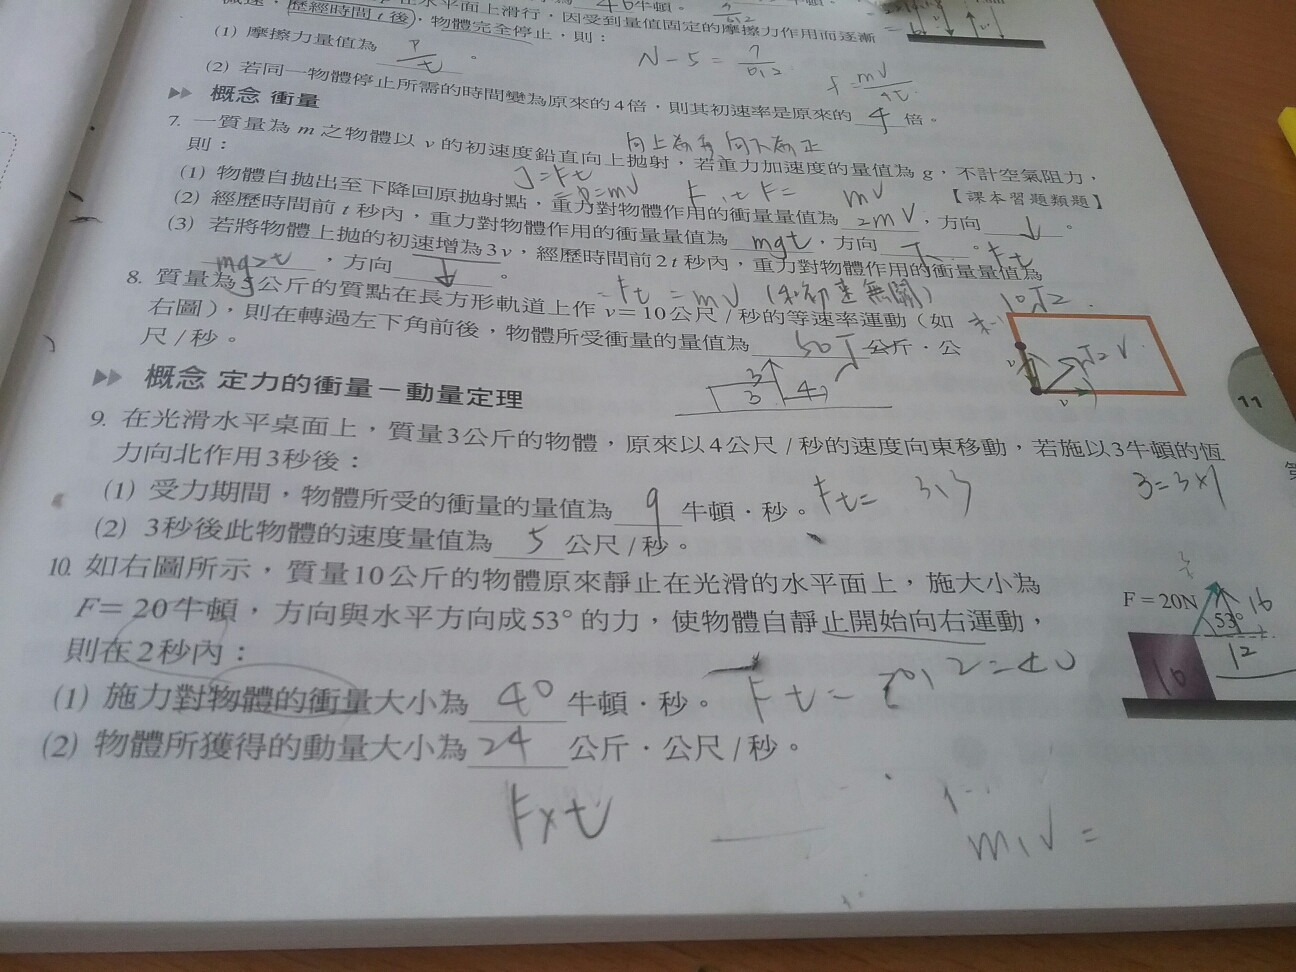 在水平面上滑行，因受到量值固定的摩擦力作用而逐漸
減速，歷經時間 t 後，物體完全停止，則：
(1) 摩擦力量值為 P/t 。
N-5=
(2) 若同一物體停止所需的時間變為原來的4倍，則其初速率是原來的 4 倍。
概念 衝量
7. 一質量為 m 之物體以 v 的初速度鉛直向上拋射，若重力加速度的量值為 g，不計空氣阻力，
則：
【課本習題類題】
(1) 物體自拋出至下降回原拋射點，重力對物體作用的衝量量值為 2mV ，方向 ↓ 。
(2) 經歷時間前 t 秒內，重力對物體作用的衝量量值為 mgt ，方向 下 。
J=Ft
Ft
(3) 若將物體上拋的初速增為3v，經歷時間前2t 秒內，重力對物體作用的衝量量值為
mg2t ，方向 ↓ 。
=Ft=mV (和初速無關)
8. 質量為5公斤的質點在長方形軌道上作 v=10公尺/秒的等速率運動（如
右圖），則在轉過左下角前後，物體所受衝量的量值為 50√2 公斤．公
尺/秒。
10√2
√2 V
v
v
11
概念 定力的衝量－動量定理
9. 在光滑水平桌面上，質量3公斤的物體，原來以4公尺/秒的速度向東移動，若施以3牛頓的恆
力向北作用3秒後：
(1) 受力期間，物體所受的衝量的量值為 9 牛頓．秒。
Ft= 3、3
3=3×1
(2) 3秒後此物體的速度量值為 5 公尺/秒。
10. 如右圖所示，質量10公斤的物體原來靜止在光滑的水平面上，施大小為
F=20牛頓，方向與水平方向成53°的力，使物體自靜止開始向右運動，
則在2秒內：
F=20N
53°
16
12
10
(1) 施力對物體的衝量大小為 40 牛頓．秒。
Ft=20、2=40
(2) 物體所獲得的動量大小為 24 公斤．公尺/秒。
F×t
m、V=